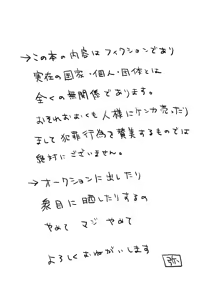 →この本の内容はフィクションであり
実在の国家・個人・団体とは
全くの無関係であります。
おそれおおくも人様にケンカ売ったり
まして犯罪行為を賛美するものでは
絶対にございません。
→オークションに出したり
衆目に晒したりするの
やめて マジ やめて
よろしくおねがいします